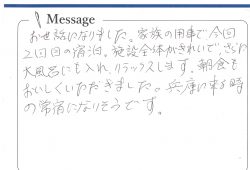 Message
お世話になりました。家族の用事で今回
2回目の宿泊。施設全体がきれいで、さらに
大風呂にも入れ、リラックスします。朝食も
おいしくいただきました。兵庫に来る時
の常宿になりそうです。